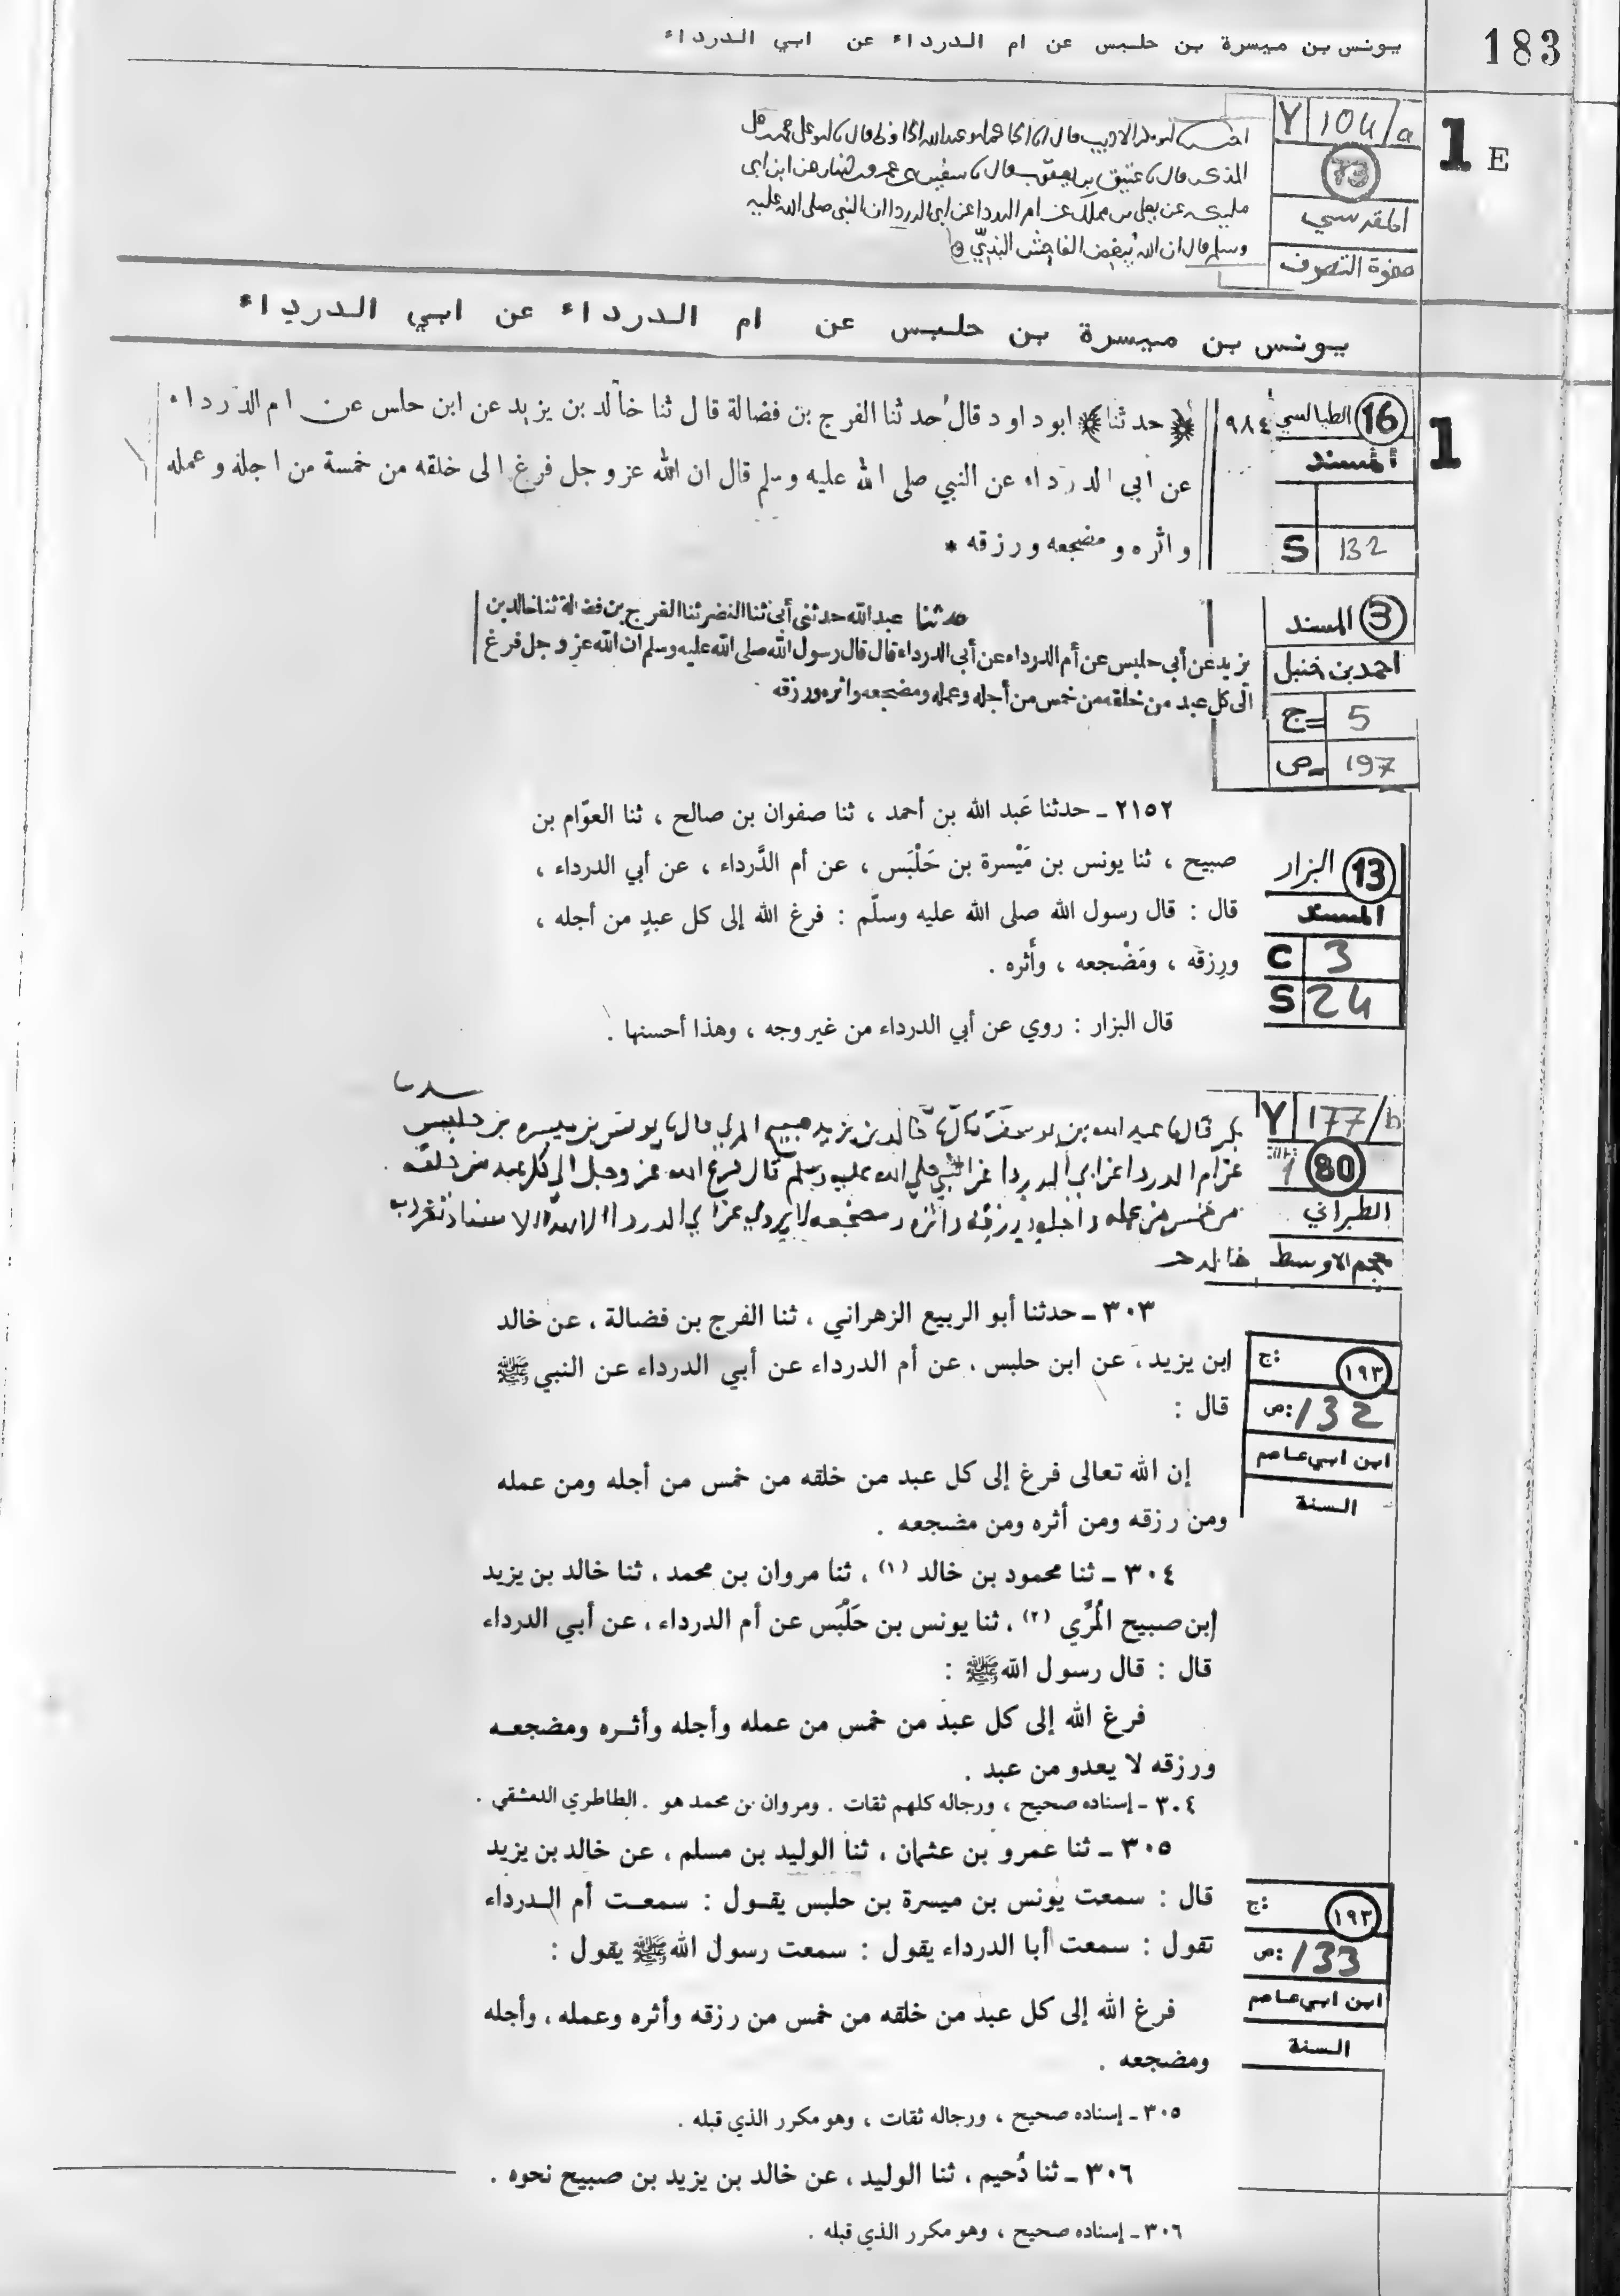 يونس بن ميسرة بن حلبس عن ام الدرداء عن ابي الدرداء
183
1 E
Y 104/a
73
المقدسي
صفوة التصوف
المذكر قال عتيق بن يعقوب قال سفين عمرو بن دينار عن ابن ابى
مليكه عن يعلى بن مملك عن ام الدردا عن ابى الدردا ان النبى صلى الله عليه
وسلم قال ان الله يبغض الفاحش البذيّ
يونس بن ميسرة بن حلبس عن ام الدرداء عن ابي الدرداء
1
16 الطيالسي
المسند
S 132
٩٨٤
﴿حدثنا﴾ ابو داود قال حدثنا الفرج بن فضالة قال ثنا خالد بن يزيد عن ابن حلس عن ام الدرداء
عن ابى الدرداء عن النبي صلى الله عليه وسلم قال ان الله عز وجل فرغ الى خلقه من خمسة من اجله وعمله
واثره ومضجعه ورزقه *
3 المسند
احمد بن حنبل
ج 5
ص 197
حدثنا عبد الله حدثنى أبى ثنا النضر ثنا الفرج بن فضالة ثنا خالد بن
يزيد عن أبى حلبس عن أم الدرداء عن أبى الدرداء قال قال رسول الله صلى الله عليه وسلم ان الله عز وجل فرغ
الى كل عبد من خلقه من خمس من أجله وعمله ومضجعه واثره ورزقه
٢١٥٢ ـ حدثنا عَبد الله بن أحمد ، ثنا صفوان بن صالح ، ثنا العوّام بن
صبيح ، ثنا يونس بن مَيْسرة بن حَلْبَس ، عن أم الدَّرداء ، عن أبي الدرداء ،
قال : قال رسول الله صلى الله عليه وسلّم : فرغ الله إلى كل عبدٍ من أجله ،
ورِزقه ، ومَضْجعه ، وأثره .
قال البزار : روي عن أبي الدرداء من غير وجه ، وهذا أحسنها .
13 البزار
المسند
C 3
S 24
Y 177/b
80
الطبراني
معجم الاوسط
بكر قال عبد الله بن يوسف قال خالد بن يزيد صبيح المري قال يونس بن ميسره بن حلبس
عن ام الدردا عن ابي الدردا عن النبي صلي الله عليه وسلم قال فرغ الله عز وجل الي كل عبد من خلقه
من خمس من عمله واجله ورزقه واثره ومضجعه لا يروي عن ابي الدردا الا بهذا الاسناد تفرد به
خالد
٣٠٣ ـ حدثنا أبو الربيع الزهراني ، ثنا الفرج بن فضالة ، عن خالد
ابن يزيد ، عن ابن حلبس ، عن أم الدرداء عن أبي الدرداء عن النبي ﷺ
قال :
إن الله تعالى فرغ إلى كل عبد من خلقه من خمس من أجله ومن عمله
ومن رزقه ومن أثره ومن مضجعه .
ج: ١٩٣
ص: 132
ابن ابي عاصم
السنة
٣٠٤ ـ ثنا محمود بن خالد (١) ، ثنا مروان بن محمد ، ثنا خالد بن يزيد
إبن صبيح المُرِّي (٢) ، ثنا يونس بن حَلْبَس عن أم الدرداء ، عن أبي الدرداء
قال : قال رسول الله ﷺ :
فرغ الله إلى كل عبد من خمس من عمله وأجله وأثـره ومضجعـه
ورزقه لا يعدو من عبد .
٣٠٤ ـ إسناده صحيح ، ورجاله كلهم ثقات . ومروان بن محمد هو . الطاطري الدمشقي .
٣٠٥ ـ ثنا عمرو بن عثمان ، ثنا الوليد بن مسلم ، عن خالد بن يزيد
قال : سمعت يونس بن ميسرة بن حلبس يقـول : سمعـت أم الـدرداء
تقول : سمعت أبا الدرداء يقول : سمعت رسول الله ﷺ يقول :
فرغ الله إلى كل عبد من خلقه من خمس من رزقه وأثره وعمله ، وأجله
ومضجعه .
ج: ١٩٣
ص: 133
ابن ابي عاصم
السنة
٣٠٥ ـ إسناده صحيح ، ورجاله ثقات ، وهو مكرر الذي قبله .
٣٠٦ ـ ثنا دُحيم ، ثنا الوليد ، عن خالد بن يزيد بن صبيح نحوه .
٣٠٦ ـ إسناده صحيح ، وهو مكرر الذي قبله .